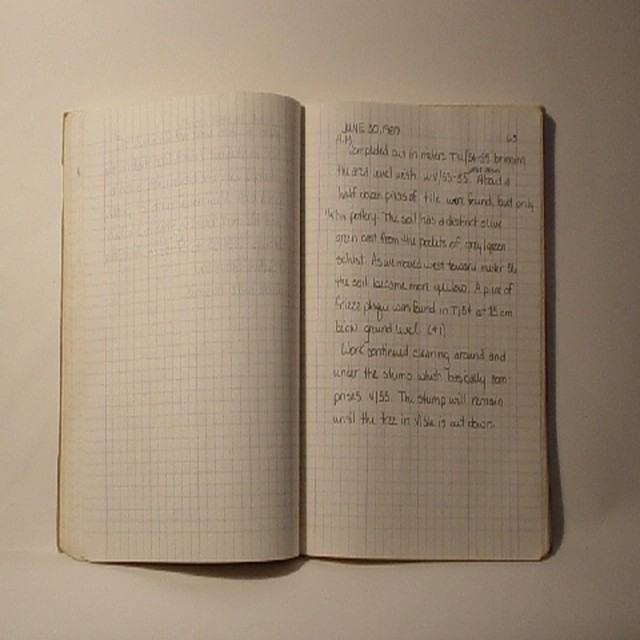 JUNE 30, 1989
63
A.M.
Completed cut in meters TU/54-55 bringing
the area level with WV/53-55. About a
half dozen pieces of tile were found, but only
1/4 bx pottery. The soil has a distinct olive
green cast from the pockets of grey/green
schist. As we moved west toward meter 54
the soil became more yellow. A piece of
frieze plaque was found in T/54 at 15 cm
below ground level. (#1)
Work continued clearing around and
under the stump which basically com-
prises V/55. The stump will remain
until the tree in V/56 is cut down.